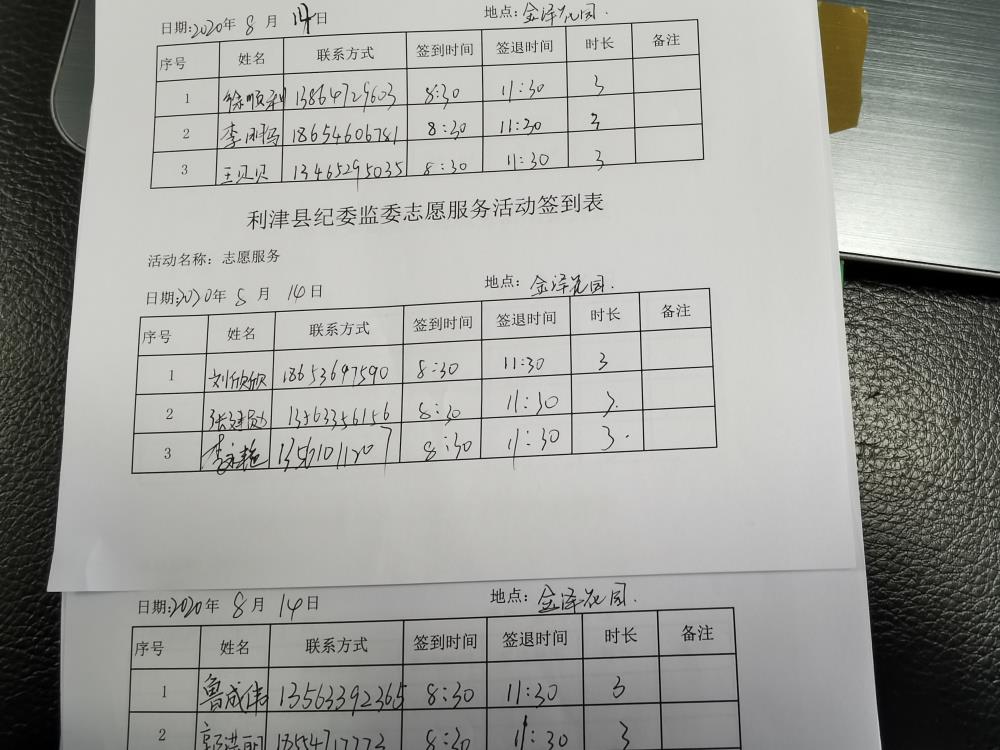 日期:2020年 8 月 14日 地点: 金泽花园.
序号 姓名 联系方式 签到时间 签退时间 时长 备注
1 徐顺利 13864729603 8:30 11:30 3
2 李 18654606781 8:30 11:30 3
3 王贝贝 13465295035 8:30 11:30 3
利津县纪委监委志愿服务活动签到表
活动名称: 志愿服务
日期:2020年 8 月 14 日 地点: 金泽花园.
序号 姓名 联系方式 签到时间 签退时间 时长 备注
1 刘欣欣 18653697590 8:30 11:30 3
2 13563356156 8:30 11:30 3.
3 李 8:30 11:30 3.
日期:2020年 8 月 14 日 地点: 金泽花园.
序号 姓名 联系方式 签到时间 签退时间 时长 备注
1 鲁成伟 13563392365 8:30 11:30 3
2 8:30 11:30 3